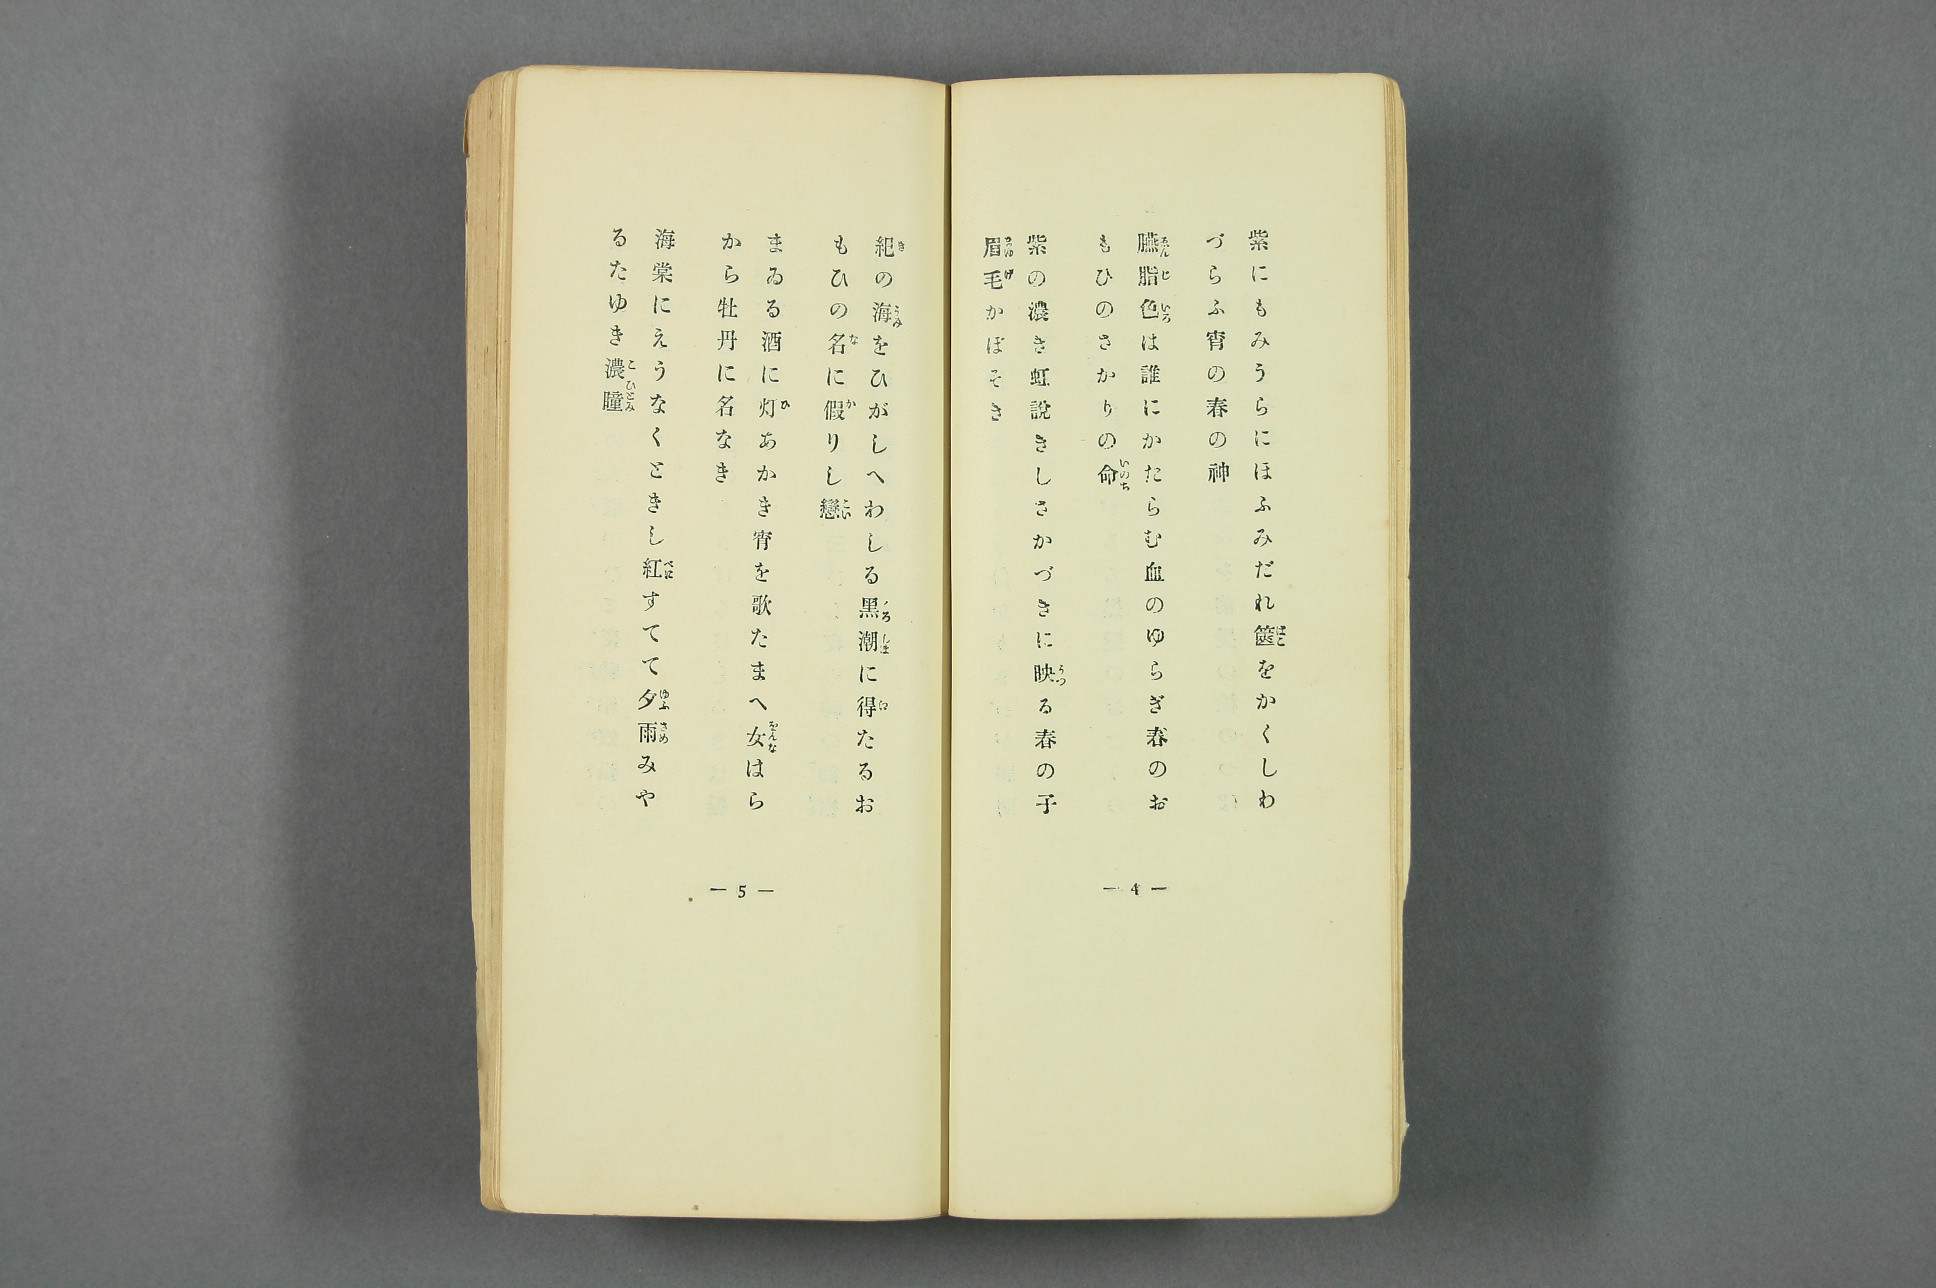 紫にもみうらにほふみだれ篋をかくしわ
づらふ宵の春の神
臙脂色は誰にかたらむ血のゆらぎ春のお
もひのさかりの命
紫の濃き虹說きしさかづきに映る春の子
眉毛かぼそき
— 4 —
紀の海をひがしへわしる黑潮に得たるお
もひの名に假りし戀
まゐる酒に灯あかき宵を歌たまへ女はら
から牡丹に名なき
海棠にえうなくときし紅すてて夕雨みや
るたゆき濃瞳
— 5 —